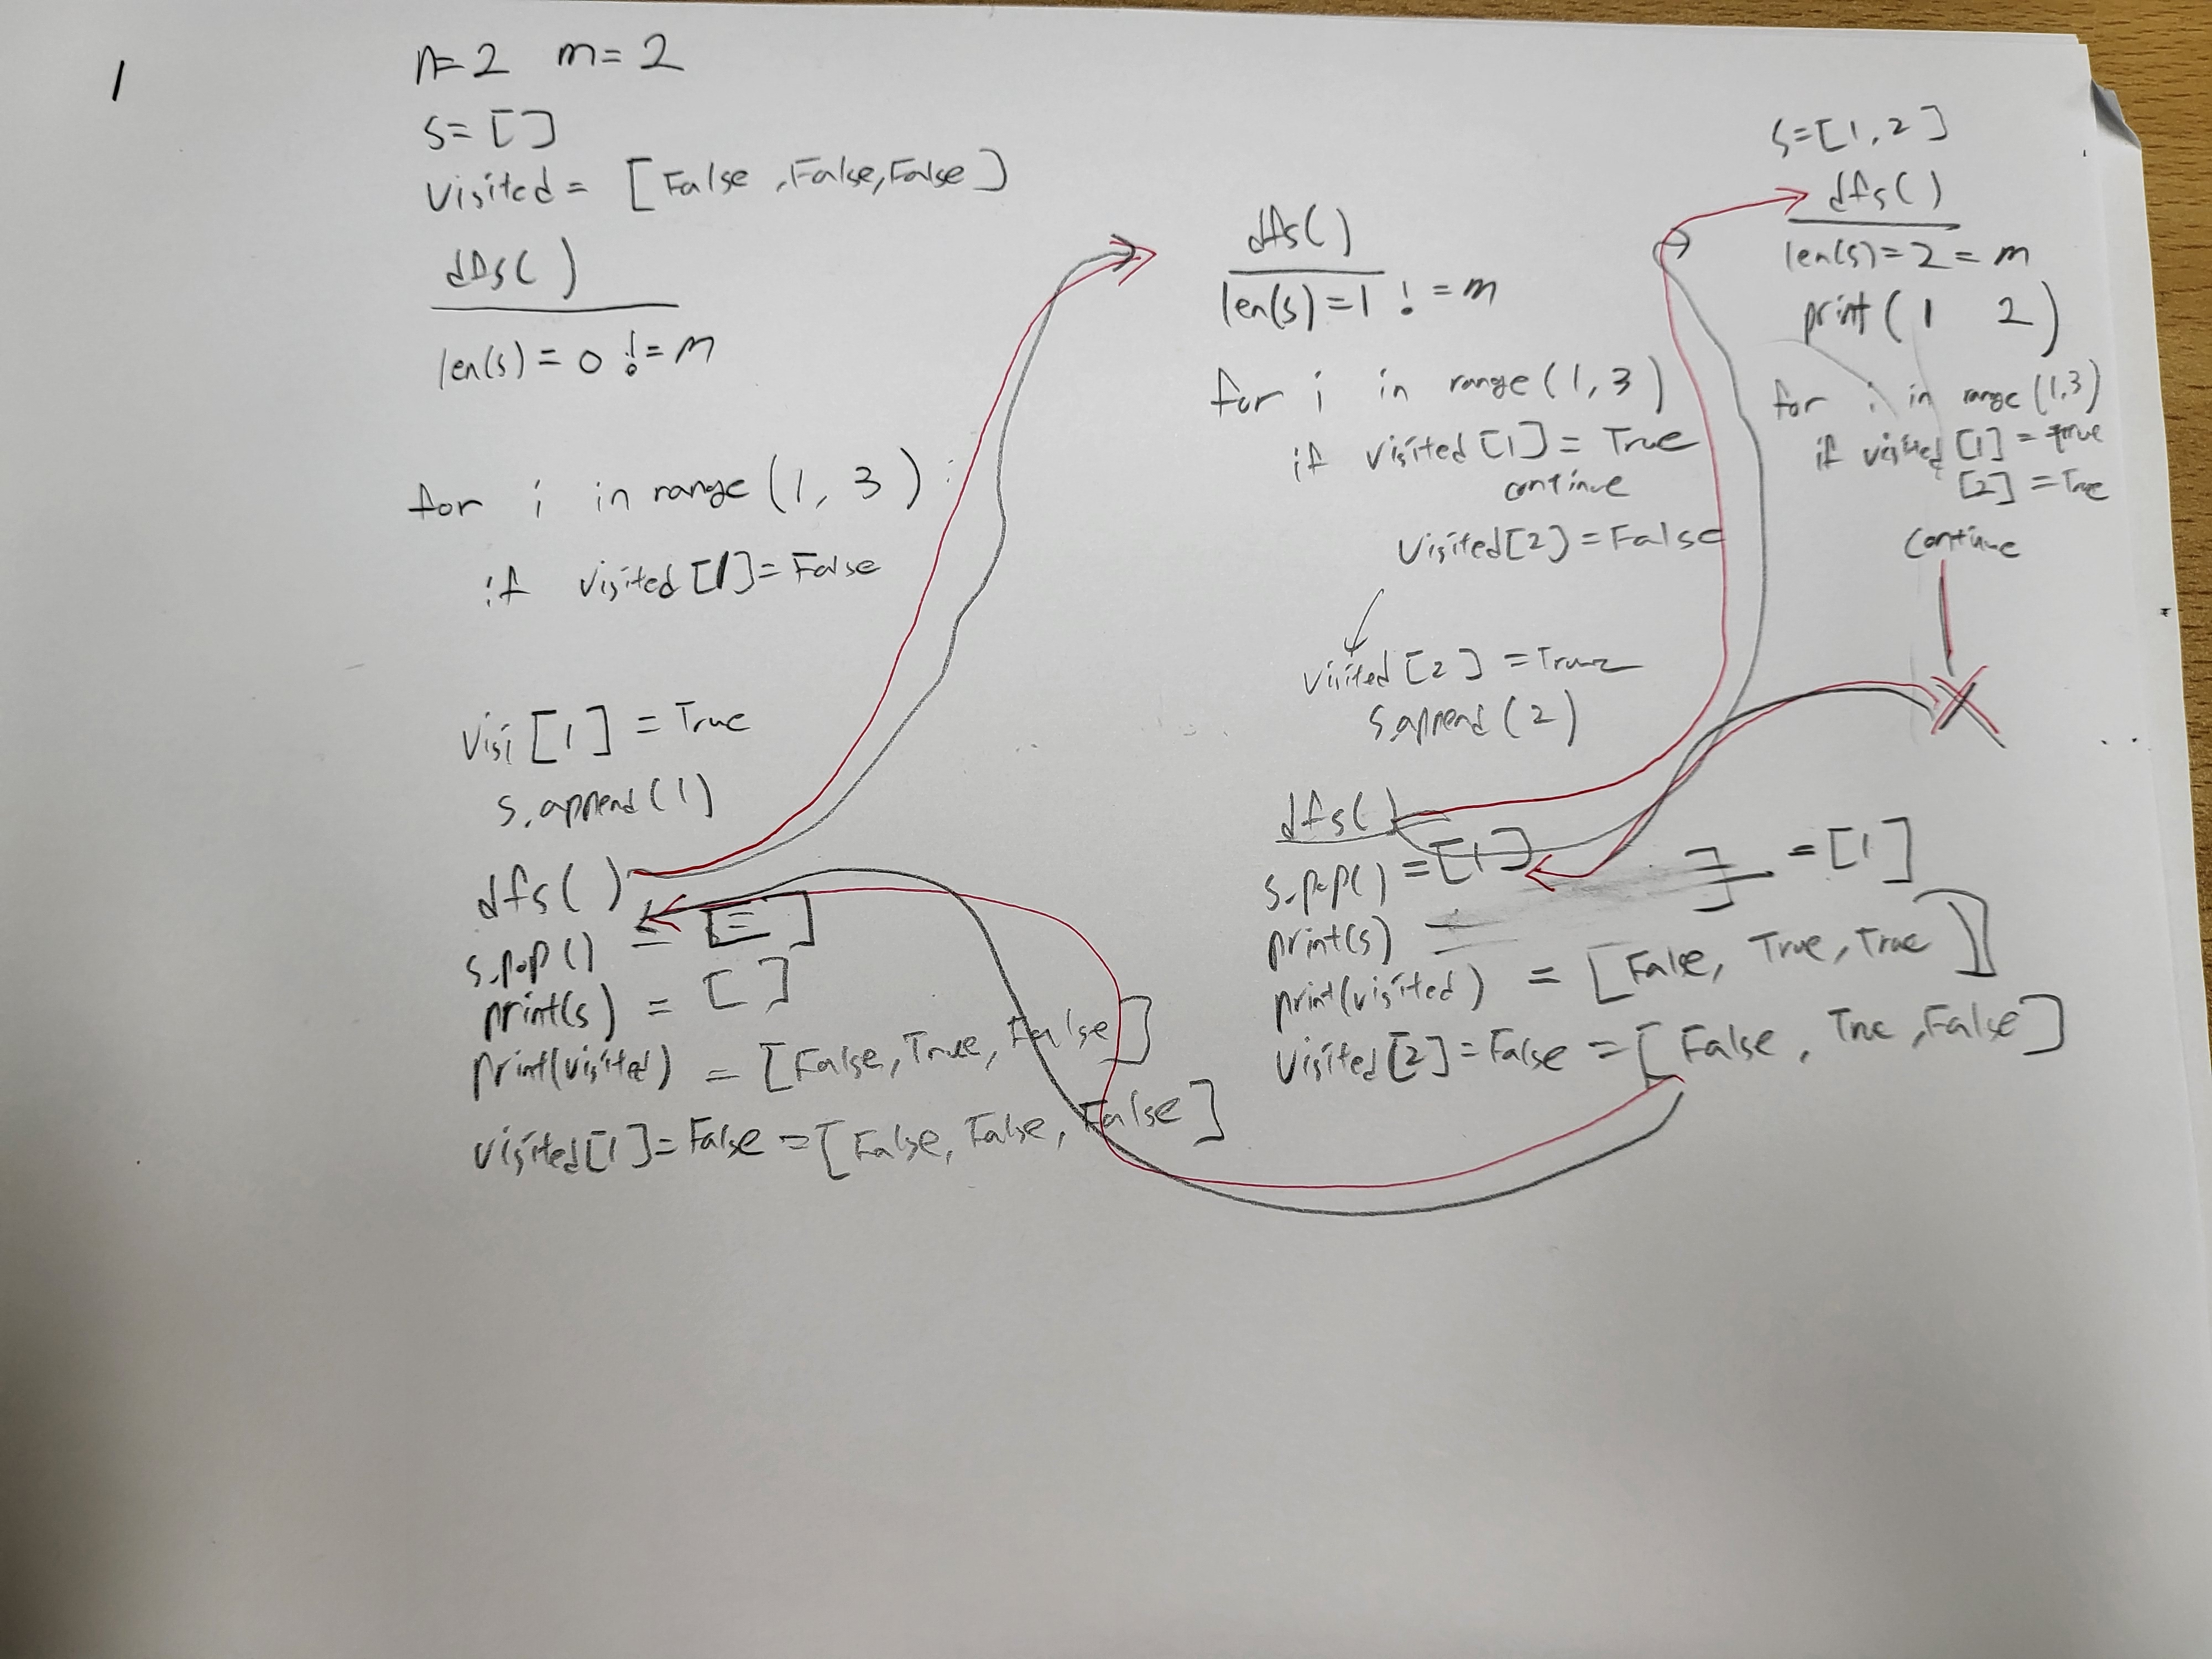 1
n=2 m=2
s=[]
visited = [False ,False,False]
dfs()
len(s)=0 !=m
for i in range(1, 3):
if visited[1]=False
visi[1] = True
s.append(1)
dfs()
s.pop() = [ ]
print(s) = [ ]
print(visited) = [False,True,False]
visited[1]=False =[False,False,False]
dfs()
len(s)=1 !=m
for i in range(1,3)
if visited[1]= True
continue
visited[2]=False
visited[2] =True
s.append(2)
dfs()
s.pop() =[1]
print(s) = =[1]
print(visited) = [False, True,True]
visited[2]=False =[False, True,False]
s=[1,2]
dfs()
len(s)=2=m
print(1 2)
for i in range(1,3)
if visited [1] =true
[2] =True
continue